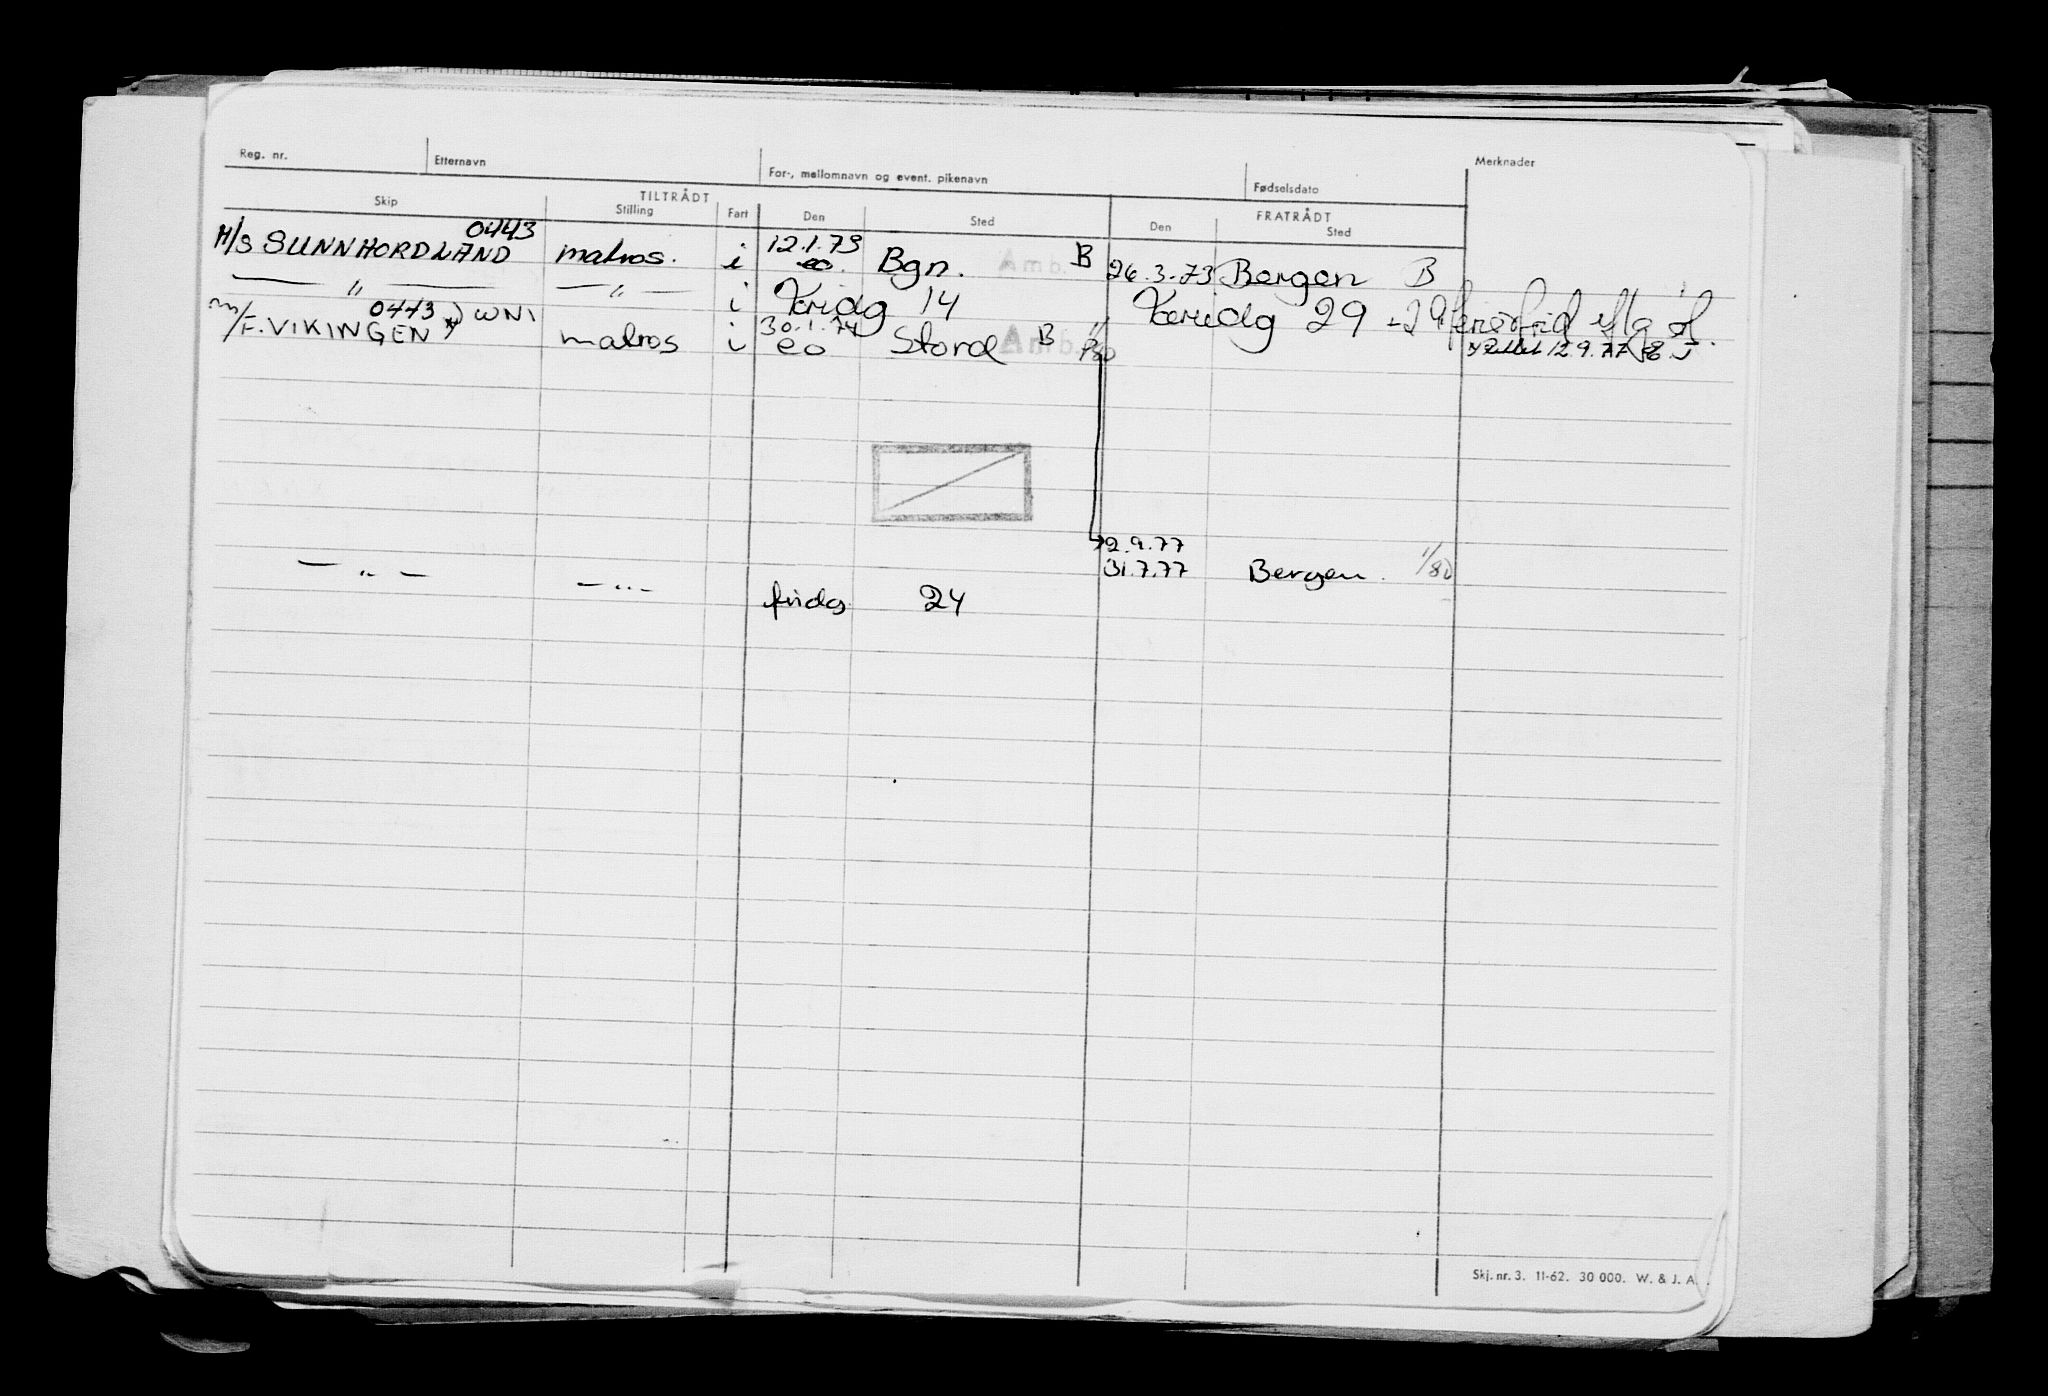 Reg. nr. Etternavn For-, mellomnavn og event. pikenavn Fødselsdato Merknader
TILTRÅDT FRATRÅDT
Skip Stilling Fart Den Sted Den Sted
0443 12.1.73
M/S SUNNHORDLAND matros. i eo. Bgn. Amb. B 26.3.73 Bergen B
— " — — " — i 14 29
0443 WNI 30.1.74
M/F. VIKINGEN matros i eo Stord B Amb. 1/80 12.9.77
2.9.77
31.7.77 Bergen. 1/80
— " — — " —
fridg 24
Skj. nr. 3. 11-62. 30 000. W. & J. A.